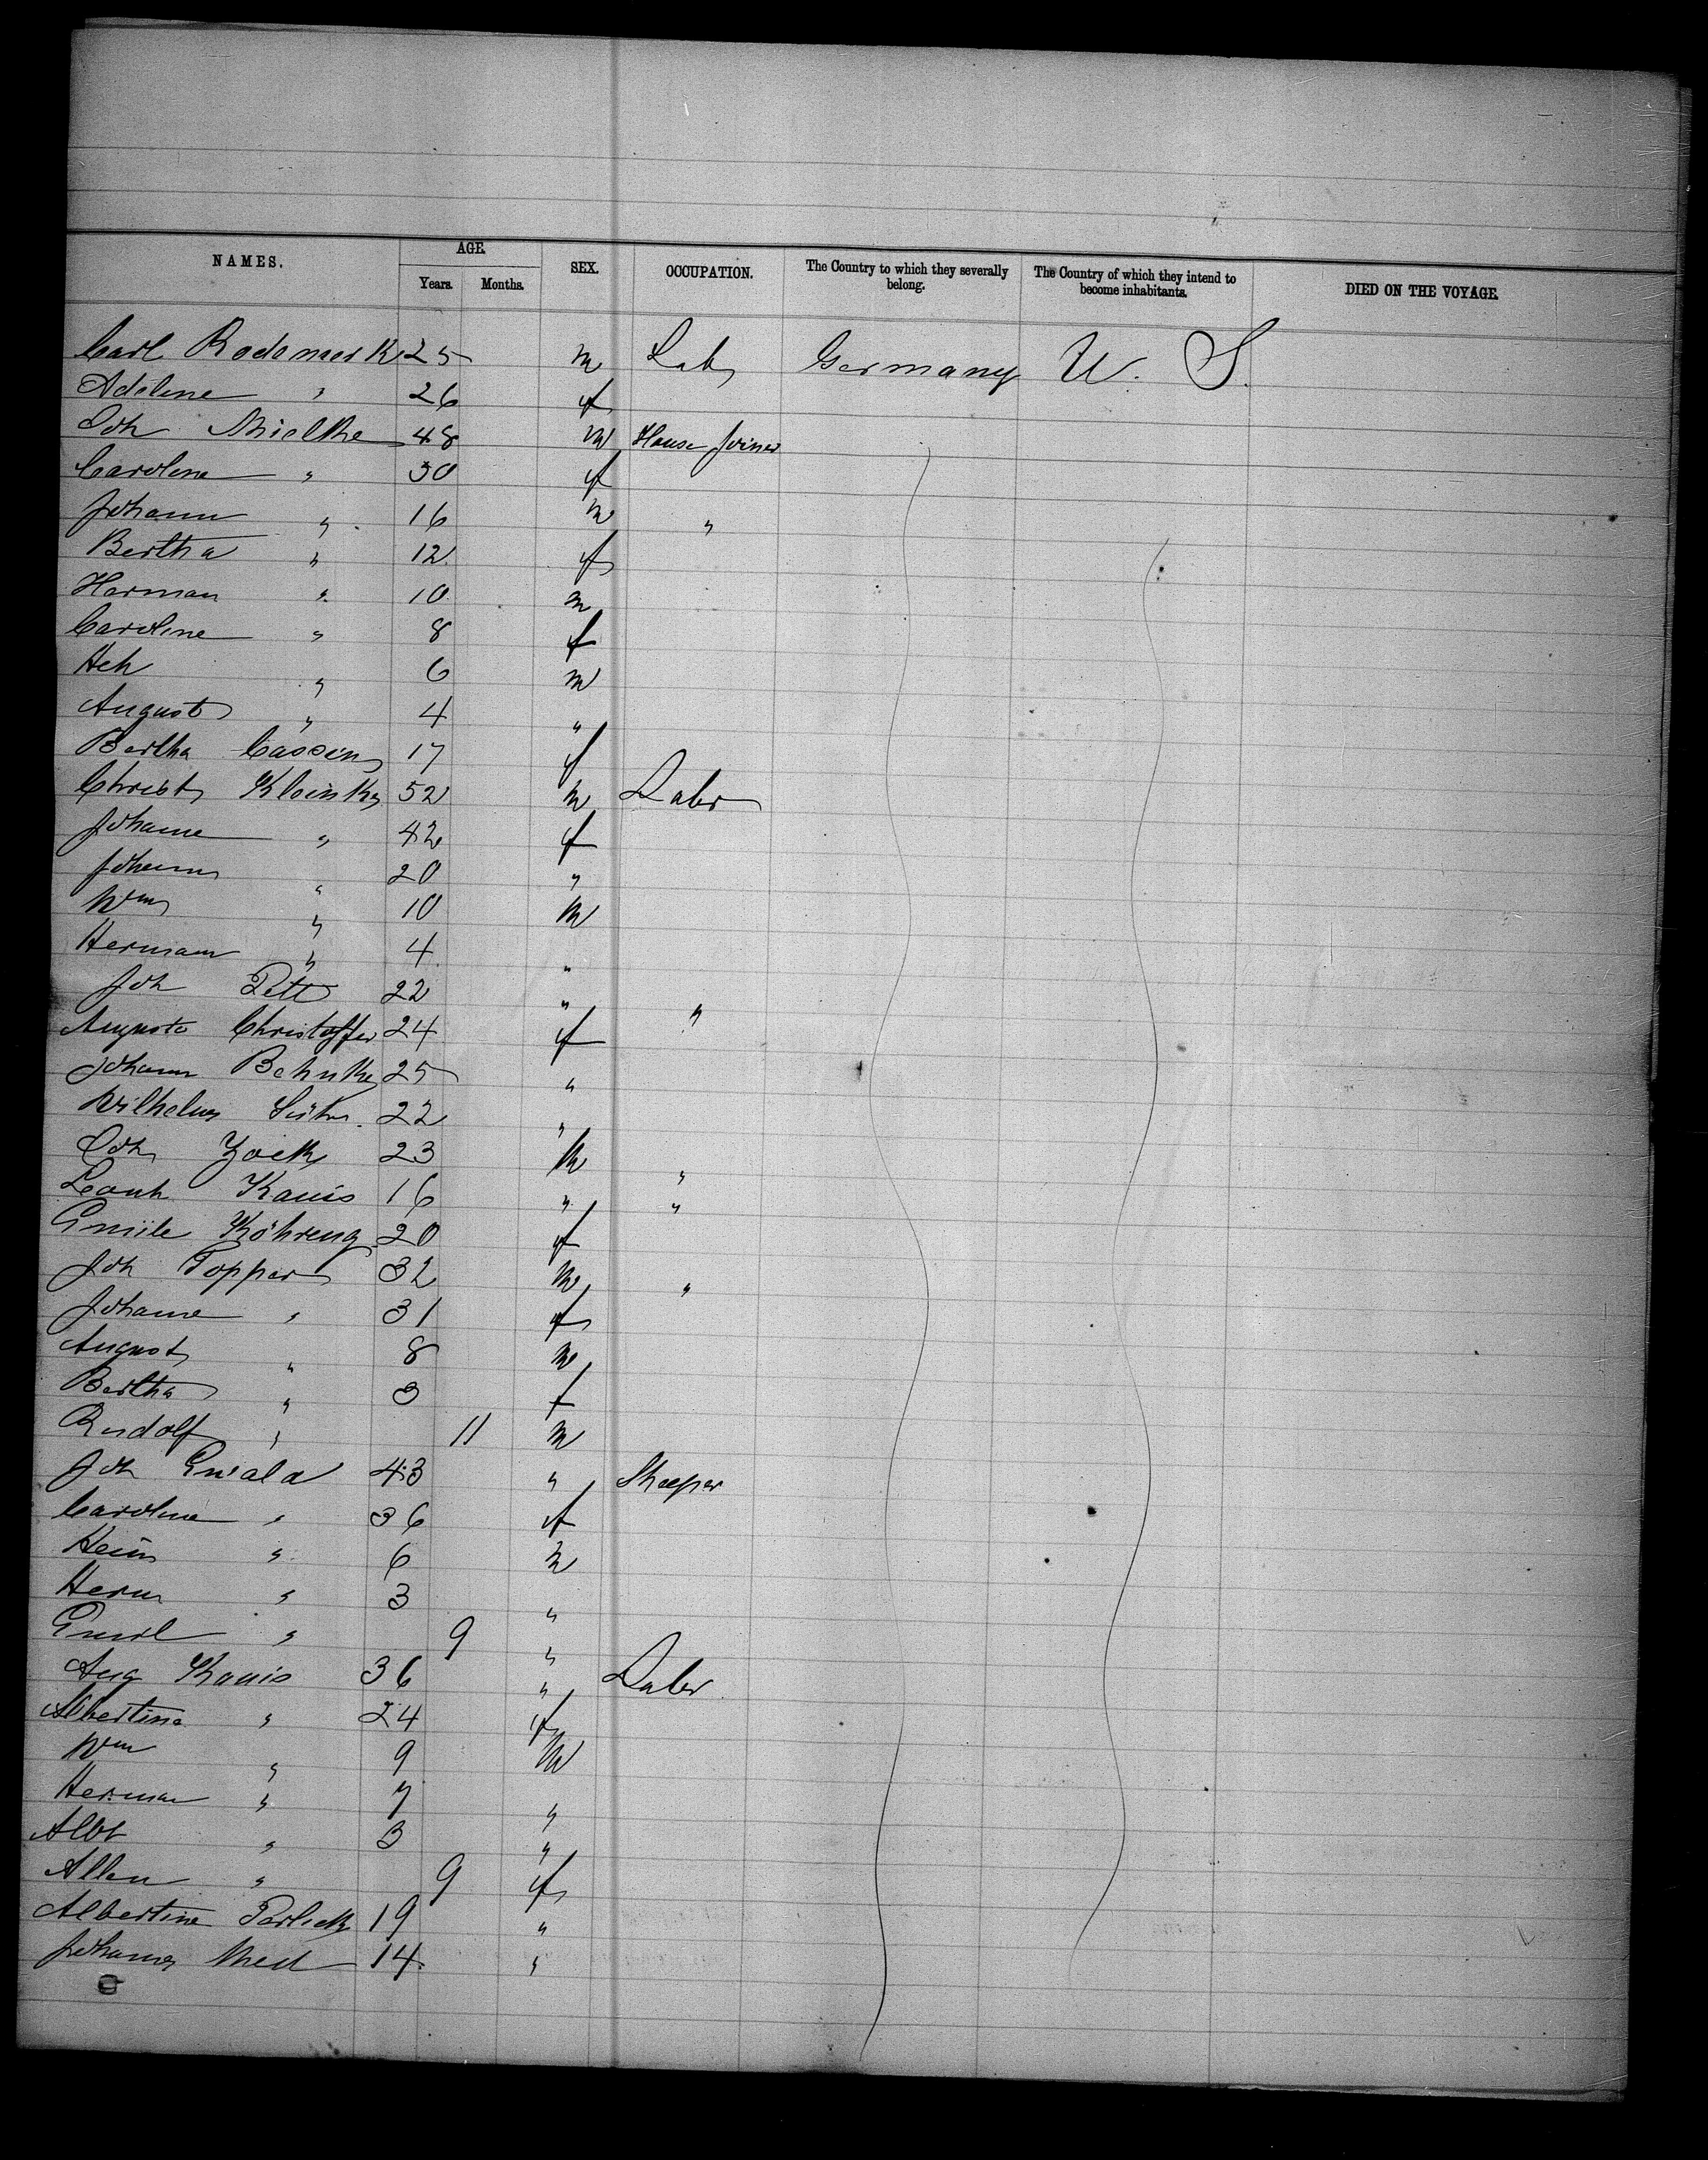 NAMES. AGE. SEX. OCCUPATION. The Country to which they severally belong. The Country of which they intend to become inhabitants. DIED ON THE VOYAGE.
Years. Months.
Carl Rademack 25 m Lab Germany U. S.
Adeline " 26 f
Joh Mielke 48 m House Joiner
Carolina " 50 f
Johann " 16 m "
Bertha " 12 f
Herman " 10 m
Caroline " 8 f
Hch " 6 m
August " 4 "
Bertha Cassin 17 f
Christ Kleinke 52 m Labr
Johanne " 42 f
Johann " 20 "
Wm " 10 m
Hermann " 4 "
Joh Pett 22 " "
Auguste Christoffer 24 f
Johann Behnke 25 "
Wilhelm 22 "
Joh Zoek 23 m "
Leonh Kanis 16 " "
Emilie Köhreng 20 f
Joh Topper 32 m "
Johanne " 31 f
August " 8 m
Bertha " 3 f
Rudolf " 11 m
Joh Ewald 43 " Sheeper
Caroline " 36 f
Hein " 6 m
Herm " 3 "
Emil " 9 "
Aug Kanis 36 " Labr
Albertine " 24 f
Wm " 9 m
Herman " 7 "
Albt " 3 "
Allen " 9 f
Albertine Perlick 19 "
Johanna 14 "